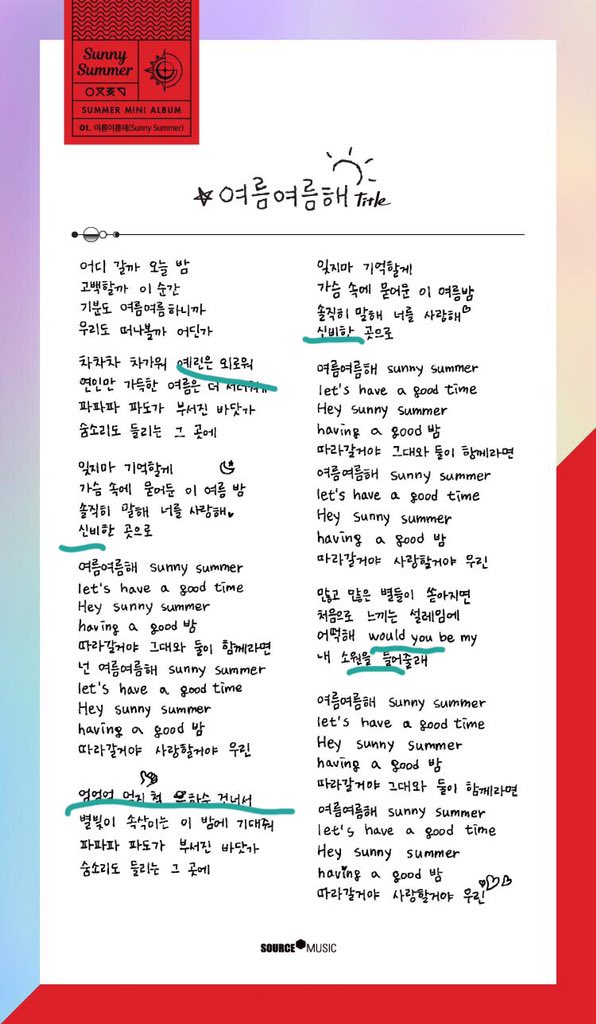 Sunny
Summer
SUMMER MINI ALBUM
01. 여름여름해(Sunny Summer)
여름여름해 Title
어디 갈까 오늘 밤
고백할까 이 순간
기분도 여름여름하니까
우리도 떠나볼까 어딘가
차차차 차가워 예린은 외로워
연인만 가득한 여름은 더
파파파 파도가 부서진 바닷가
숨소리도 들리는 그 곳에
잊지마 기억할게
가슴 속에 묻어둔 이 여름 밤
솔직히 말해 너를 사랑해
신비한 곳으로
여름여름해 sunny summer
let's have a good time
Hey sunny summer
having a good 밤
따라갈거야 그대와 둘이 함께라면
넌 여름여름해 sunny summer
let's have a good time
Hey sunny summer
having a good 밤
따라갈거야 사랑할거야 우린
엄엄엄 엄지 척 은하수 건너서
별빛이 속삭이는 이 밤에 기대줘
파파파 파도가 부서진 바닷가
숨소리도 들리는 그 곳에
잊지마 기억할게
가슴 속에 묻어둔 이 여름밤
솔직히 말해 너를 사랑해
신비한 곳으로
여름여름해 sunny summer
let's have a good time
Hey sunny summer
having a good 밤
따라갈거야 그대와 둘이 함께라면
여름여름해 sunny summer
let's have a good time
Hey sunny summer
having a good 밤
따라갈거야 사랑할거야 우린
많고 많은 별들이 쏟아지면
처음으로 느끼는 설레임에
어떡해 would you be my
내 소원을 들어줄래
여름여름해 sunny summer
let's have a good time
Hey sunny summer
having a good 밤
따라갈거야 그대와 둘이 함께라면
여름여름해 sunny summer
let's have a good time
Hey sunny summer
having a good 밤
따라갈거야 사랑할거야 우린
SOURCE MUSIC